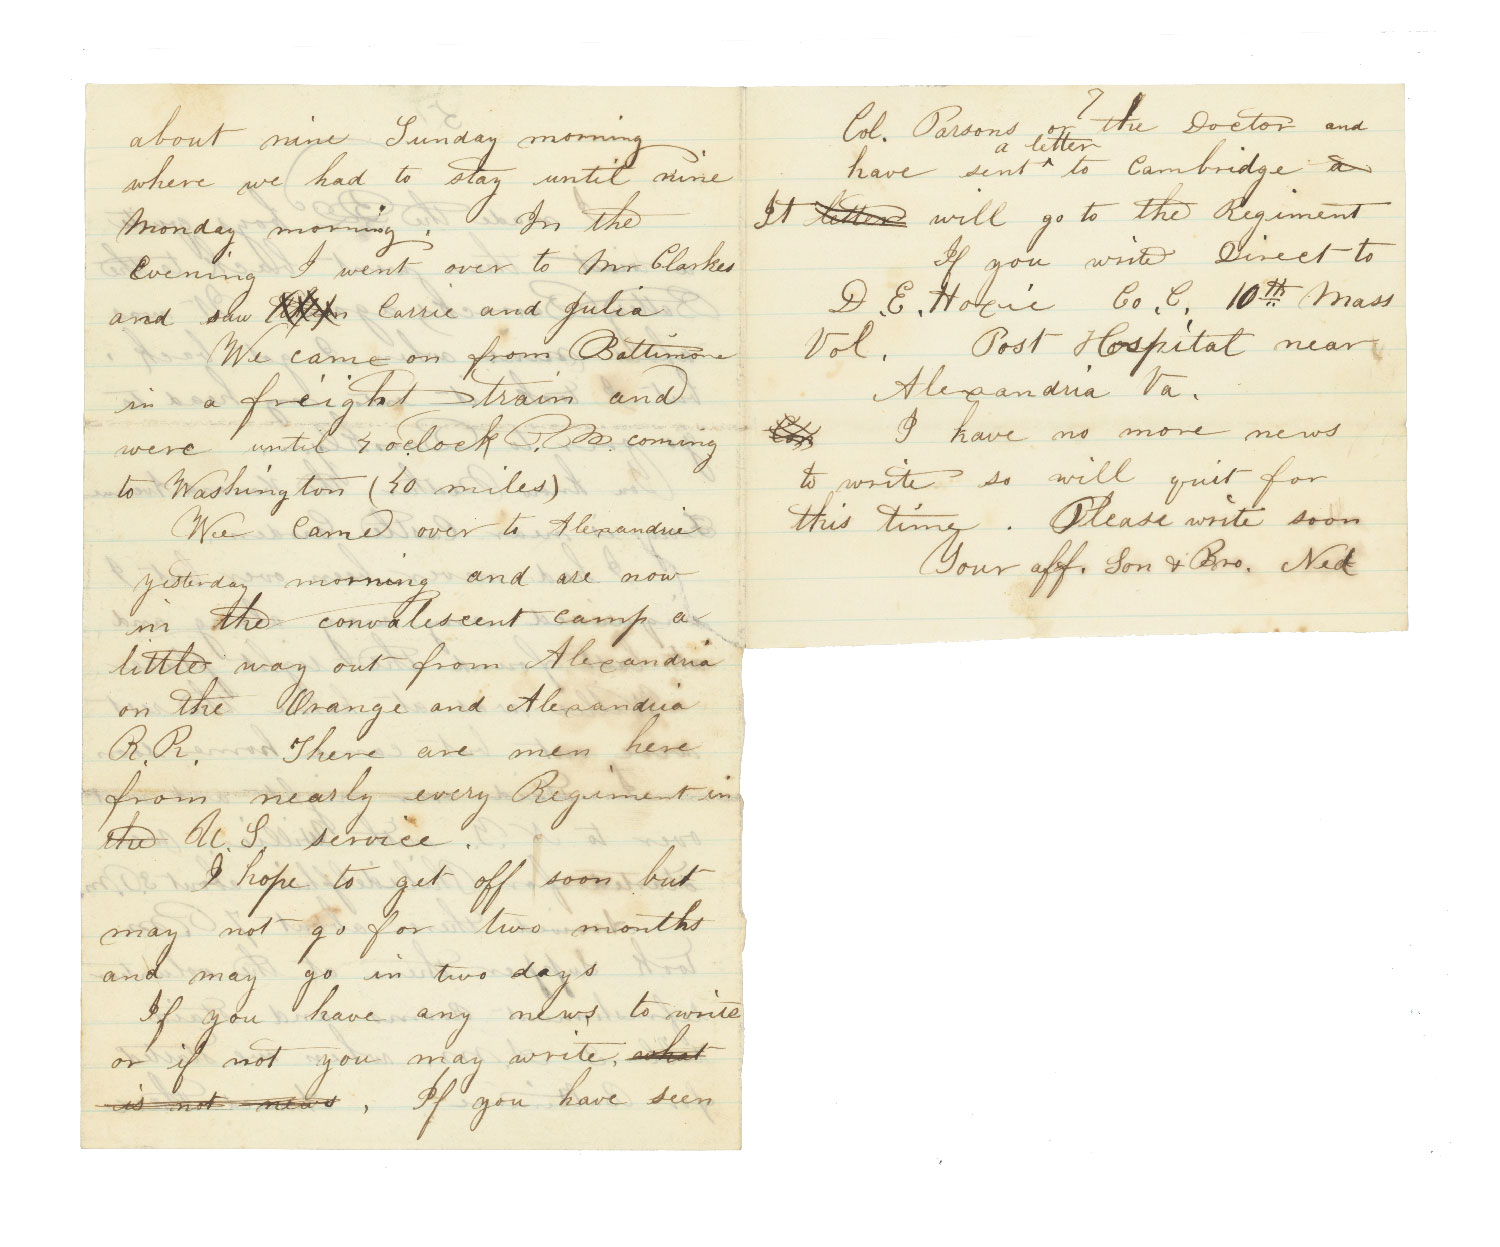 about nine Sunday morning
where we had to stay until nine
Monday morning. In the
Evening I went over to Mr Clarkes
and saw Carrie and Julia
We came on from Baltimore
in a freight train and
were until 4 oclock P.M. coming
to Washington (40 miles)
We came over to Alexandria
yesterday morning and are now
in the convalescent camp a
little way out from Alexandria
on the Orange and Alexandria
R.R. There are men here
from nearly every Regiment in
the U.S. service.
I hope to get off soon but
may not go for two months
and may go in two days
If you have any news to write
or if not you may write, what
is not news. If you have seen
7
Col. Parsons or the Doctor and
a letter
have sent ^ to Cambridge a
It letter will go to the Regiment
If you write Direct to
D.E. Hoxie Co. C. 10th Mass
Vol. Post Hospital near
Alexandria Va.
I have no more news
to write so will quit for
this time. Please write soon
Your aff. Son & Bro. Ned